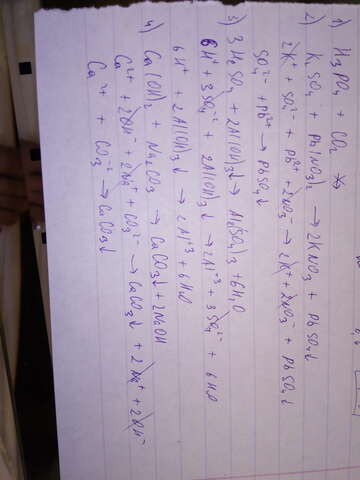 1) H3PO4 + CO2 ↛
2) K2SO4 + Pb(NO3)2 → 2KNO3 + PbSO4↓
2K⁺ + SO4²⁻ + Pb²⁺ + 2NO3⁻ → 2K⁺ + 2NO3⁻ + PbSO4↓
SO4²⁻ + Pb²⁺ → PbSO4↓
3) 3H2SO4 + 2Al(OH)3↓ → Al2(SO4)3 + 6H2O
6H⁺ + 3SO4²⁻ + 2Al(OH)3↓ → 2Al⁺³ + 3SO4²⁻ + 6H2O
6H⁺ + 2Al(OH)3↓ → 2Al⁺³ + 6H2O
4) Ca(OH)2 + Na2CO3 → CaCO3↓ + 2NaOH
Ca²⁺ + 2OH⁻ + 2Na⁺ + CO3²⁻ → CaCO3↓ + 2Na⁺ + 2OH⁻
Ca²⁺ + CO3²⁻ → CaCO3↓